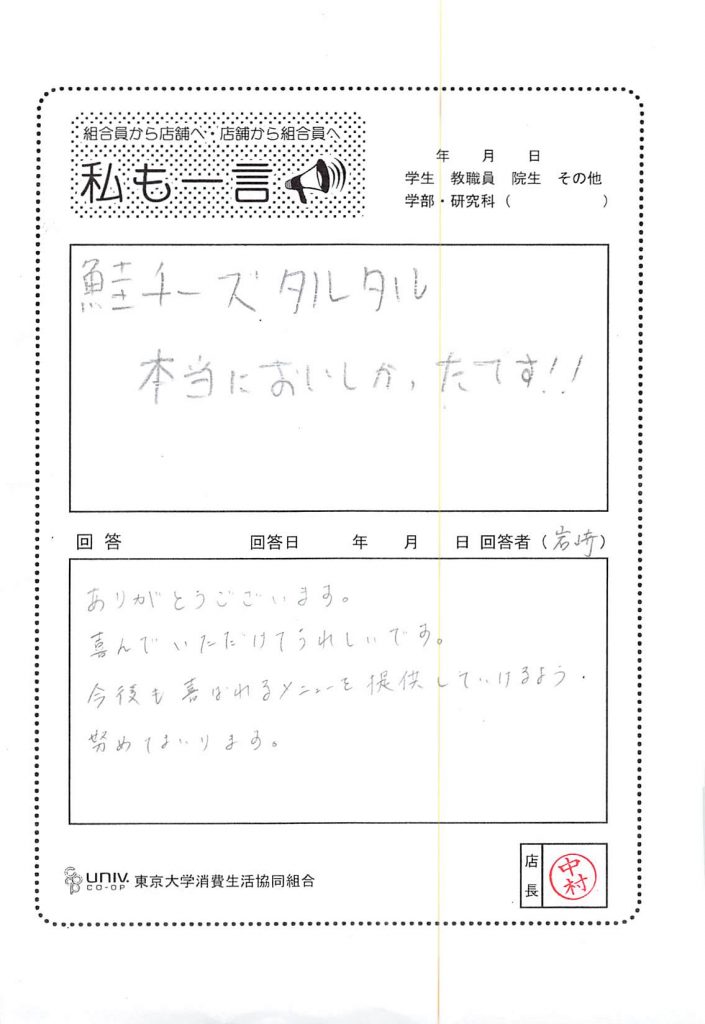 組合員から店舗へ・店舗から組合員へ
私も一言
年 月 日
学生 教職員 院生 その他
学部・研究科（ ）
鮭チーズタルタル
本当においしかったです!!
回答 回答日 年 月 日 回答者（岩崎）
ありがとうございます。
喜んでいただけてうれしいです。
今後も喜ばれるメニューを提供していけるよう.
努めてまいります。
CO-OP UNIV. CO-OP 東京大学消費生活協同組合
店長 中村